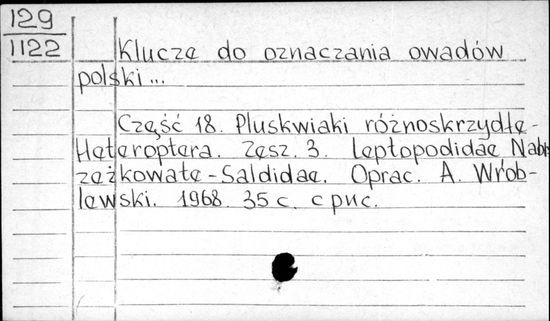 129
1122
Klucze do oznaczania owadów
polski...
Część 18. Pluskwiaki różnoskrzydłe-
Heteroptera. Zesz. 3. Leptopodidae Nab
rzeżkowate-Saldidae. Oprac. A. Wrób-
lewski. 1968. 35 с. с рис.